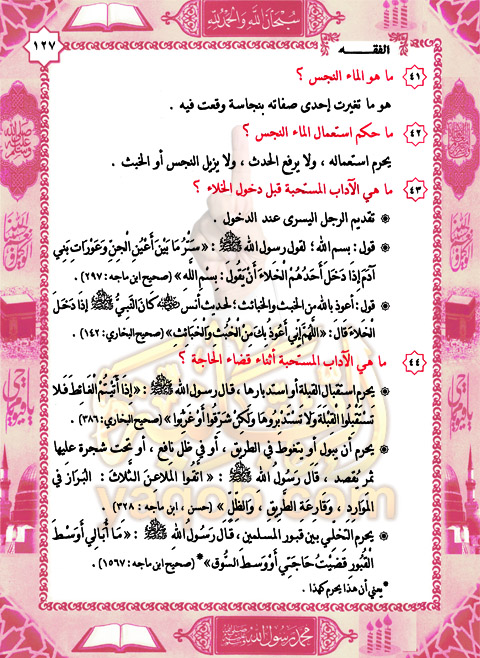 سبحان الله والحمد لله
١٢٧
الفقـــه
٤١ ما هو الماء النجس ؟
هو ما تغيرت إحدى صفاته بنجاسة وقعت فيه .
٤٢ ما حكم استعمال الماء النجس ؟
يحرم استعماله ، ولا يرفع الحدث ، ولا يزيل النجس أو الخبث .
٤٣ ما هي الآداب المستحبة قبل دخول الخلاء ؟
تقديم الرجل اليسرى عند الدخول .
قول : بسم الله ؛ لقول رسول الله ﷺ : « سَتْرُ مَا بَيْنَ أَعْيُنِ الْجِنِّ وَعَوْرَاتِ بَنِي
آدَمَ إِذَا دَخَلَ أَحَدُهُمُ الْخَلَاءَ أَنْ يَقُولَ : بِسْمِ اللَّهِ » (صحيح ابن ماجه : ٢٩٧) .
قول : أعوذ بالله من الخبث والخبائث ؛ لحديث أنس ﷺ كَانَ النَّبِيُّ ﷺ إِذَا دَخَلَ
الْخَلَاءَ قَالَ : « اللَّهُمَّ إِنِّي أَعُوذُ بِكَ مِنَ الْخُبُثِ وَالْخَبَائِثِ » (صحيح البخاري : ١٤٢) .
٤٤ ما هي الآداب المستحبة أثناء قضاء الحاجة ؟
يحرم استقبال القبلة أو استدبارها ، قال رسول الله ﷺ : « إِذَا أَتَيْتُمُ الْغَائِطَ فَلَا
تَسْتَقْبِلُوا الْقِبْلَةَ وَلَا تَسْتَدْبِرُوهَا وَلَكِنْ شَرِّقُوا أَوْ غَرِّبُوا » (صحيح البخاري : ٣٨٦) .
يحرم أن يبول أو يتغوط في الطريق ، أو في ظل نافع ، أو تحت شجرة عليها
ثمر يُقصد ، قَالَ رَسُولُ اللهِ ﷺ : « اتَّقُوا الْمَلَاعِنَ الثَّلَاثَ : الْبَرَازَ فِي
الْمَوَارِدِ ، وَقَارِعَةِ الطَّرِيقِ ، وَالظِّلِّ » (حسن ، ابن ماجه : ٣٢٨) .
يحرم التخلي بين قبور المسلمين ، قَالَ رَسُولُ اللهِ ﷺ : « مَا أُبَالِي أَوَسْطَ
الْقُبُورِ قَضَيْتُ حَاجَتِي أَوْ وَسْطَ السُّوقِ »* (صحيح ابن ماجه : ١٥٦٧) .
* يعني أن هذا يحرم كهذا .
محمد رسول الله ﷺ
yaqob.com